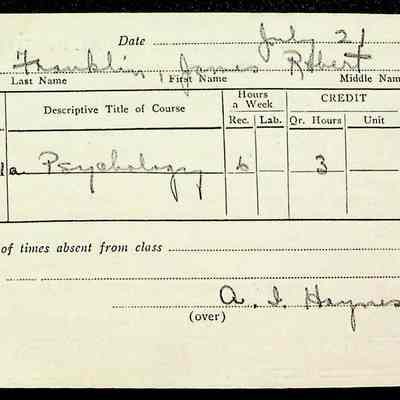 Date July 21
Franklin, James Robert
Last Name First Name Middle Nam
Descriptive Title of Course Hours a Week CREDIT
Rec. Lab. Qr. Hours Unit
a. Psychology 6 3
of times absent from class
A. I. Haynes
(over)